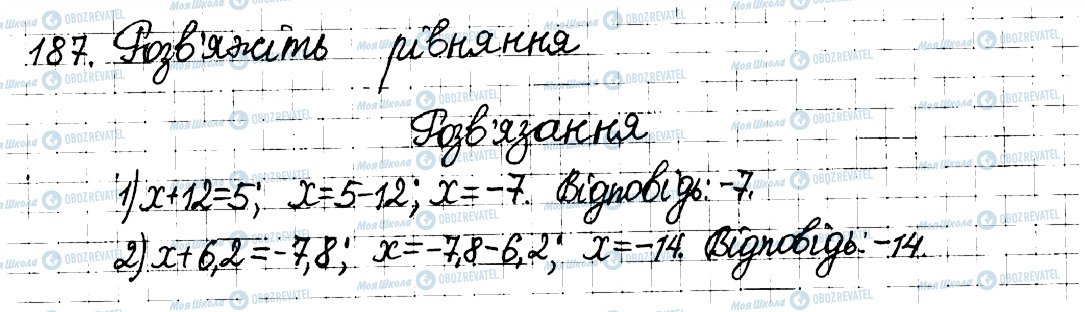 187. Розв'яжіть рівняння
Розв'язання
1) x+12=5; x=5-12; x=-7. Відповідь: -7.
2) x+6,2=-7,8; x=-7,8-6,2; x=-14. Відповідь: -14.